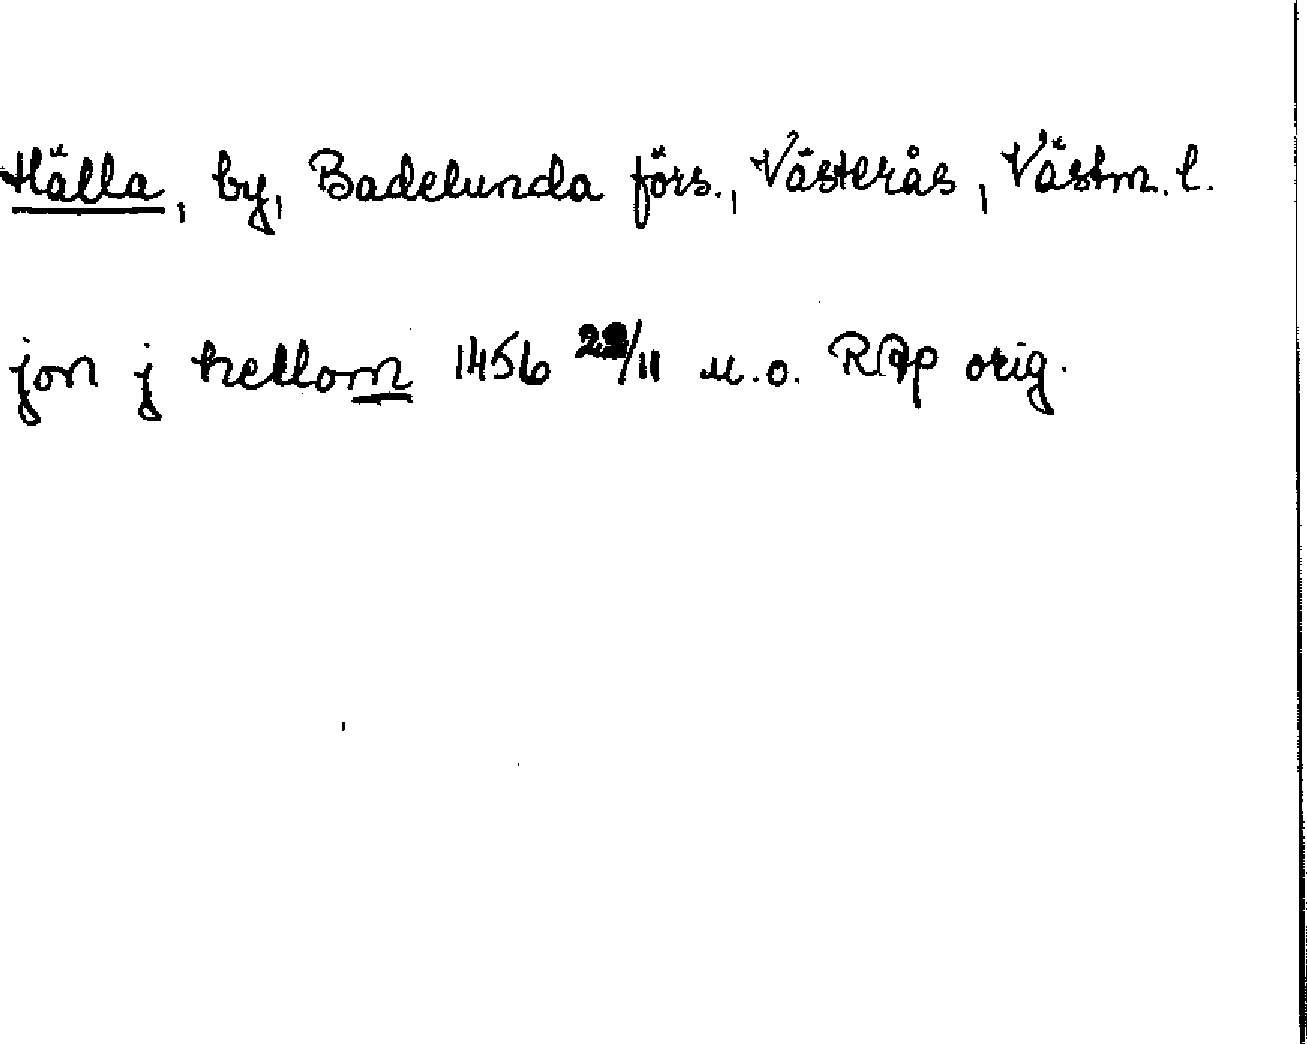 Hälla, by, Badelunda förs., Västerås, Västm. l.
jon j hellom 1456 22/11 u.o. RAp orig.